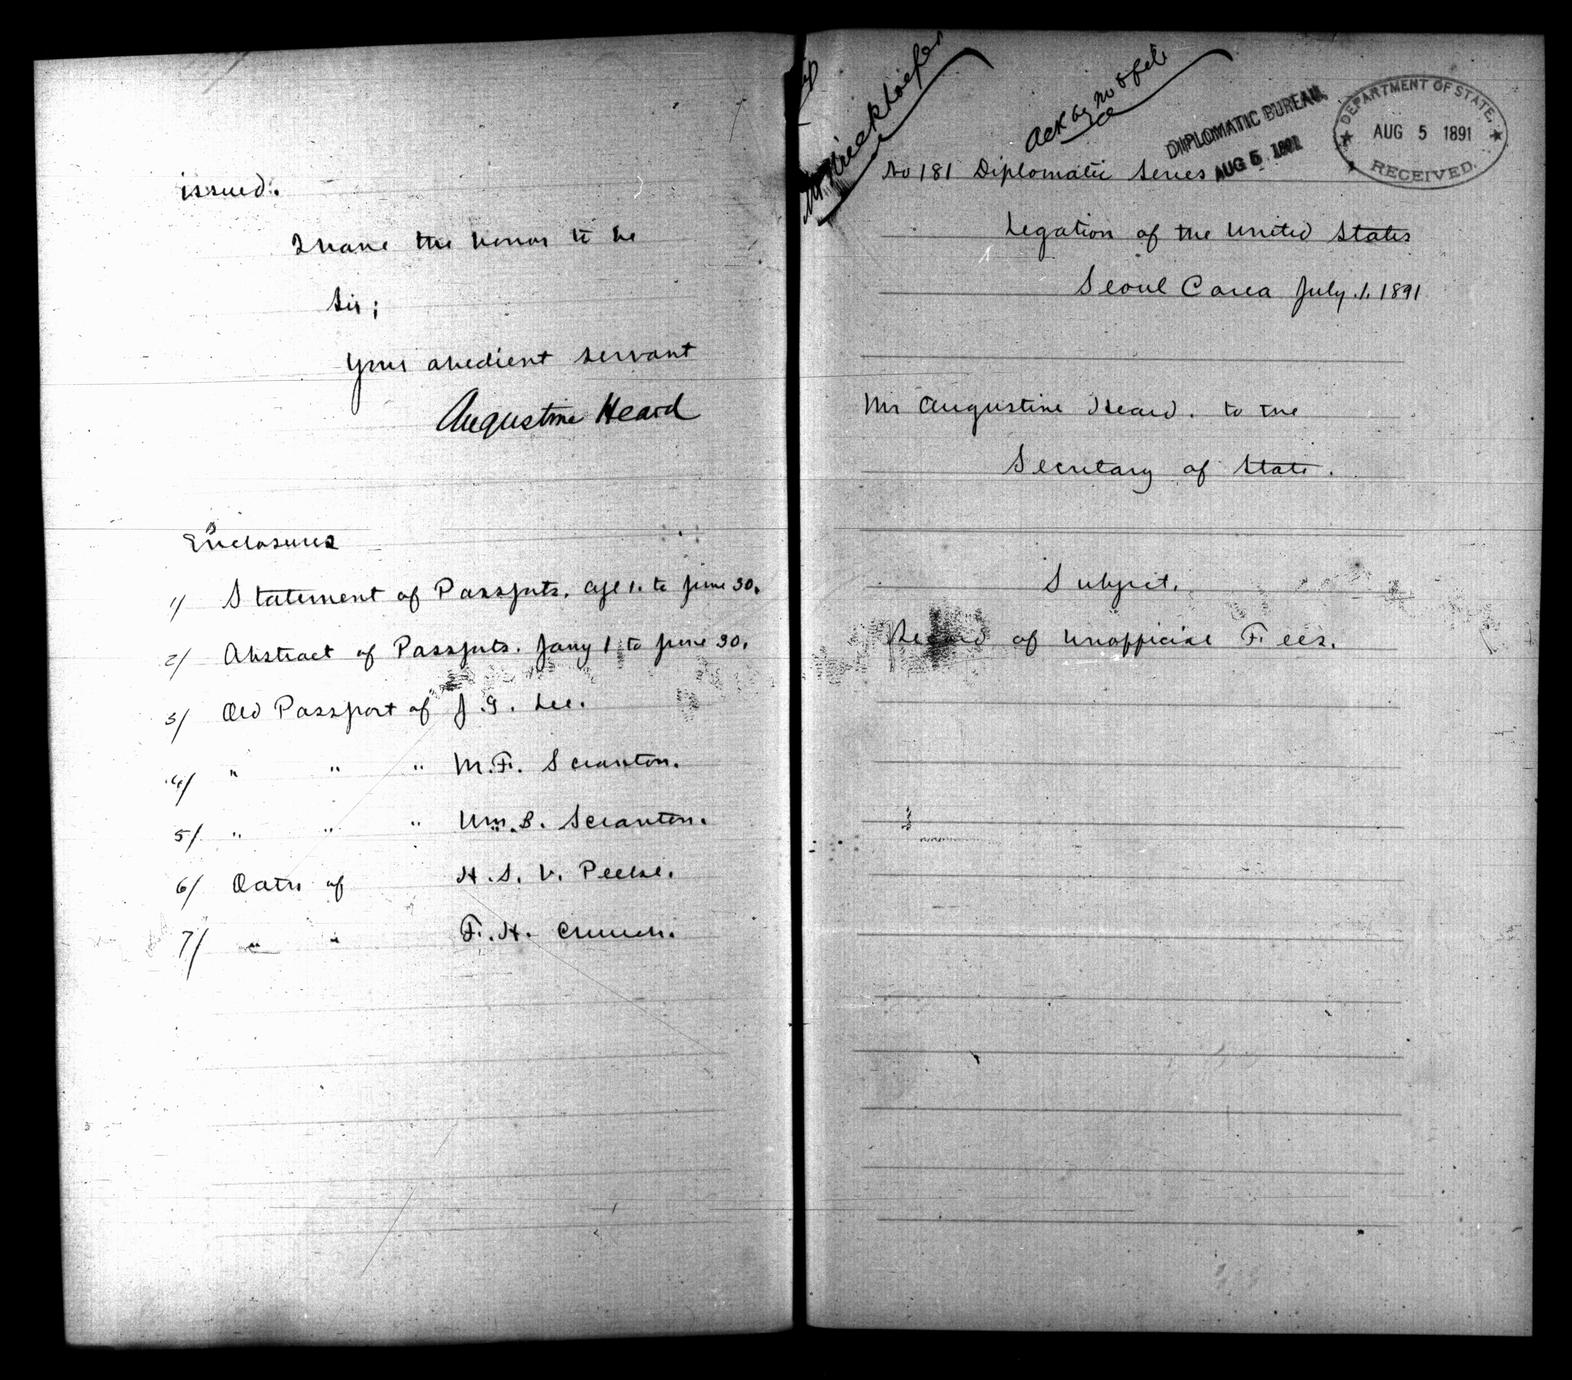 issued.
I have the honor to be
Sir;
Your obedient servant
Augustine Heard
Enclosures
1/ Statement of Passports. Apl 1. to June 30.
2/ Abstract of Passports. Jany 1 to June 30.
3/ Old Passport of J. G. Lee.
4/ " " " M. F. Scranton.
5/ " " " Wm. B. Scranton.
6/ Oath of H. S. V. Peeke.
7/ " " F. H. Church.
Ack by no
DIPLOMATIC BUREAU,
AUG 5 1891
DEPARTMENT OF STATE,
AUG 5 1891
RECEIVED.
No 181 Diplomatic Series
Legation of the United States
Seoul Corea July 1. 1891
Mr Augustine Heard. to the
Secretary of State.
Subject.
Record of Unofficial Fees.